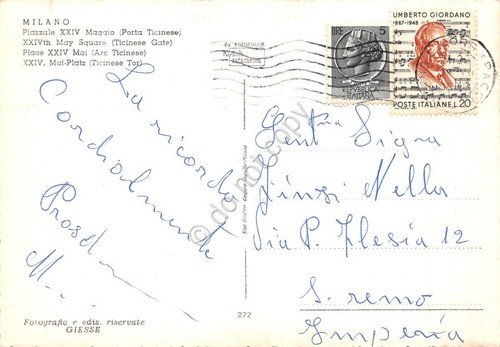 MILANO
Piazzale XXIV Maggio (Porta Ticinese)
XXIVth May Square (Ticinese Gate)
Place XXIV Mai (Arc Ticinese)
XXIV. Mai-Platz (Ticinese Tor)
La ricorda
Cordialmente
Fotografia e ediz. riservate
GIESSE
272
LIRE 5
REPUBBLICA
ITALIANA
UMBERTO GIORDANO
1867-1948
POSTE ITALIANE L. 20
Gent.ma Sigra
Nella
Via P. Iglesia 12
S. remo
Imperia
© do not copy